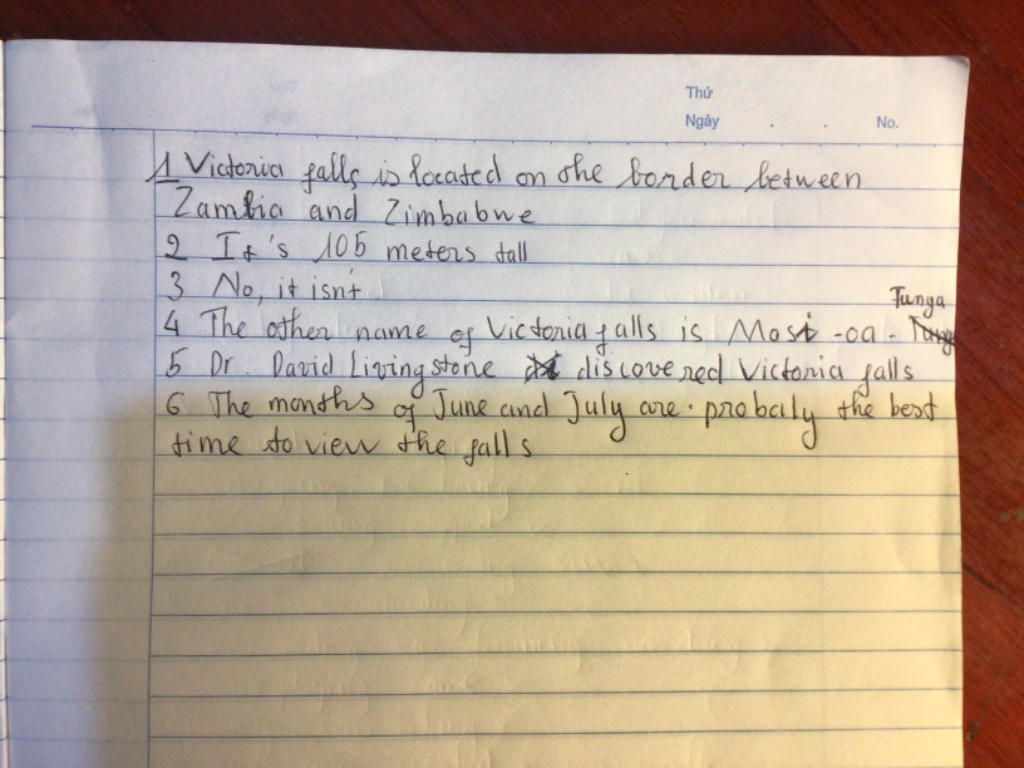 Thứ
Ngày . . No.
1 Victoria falls is located on the border between
Zambia and Zimbabwe
2 It's 105 meters tall
3 No, it isn't
Tunga
4 The other name of Victoria falls is Mosi -oa - Tung
5 Dr. David Livingstone discovered Victoria falls
6 The months of June and July are probaly the best
time to view the falls